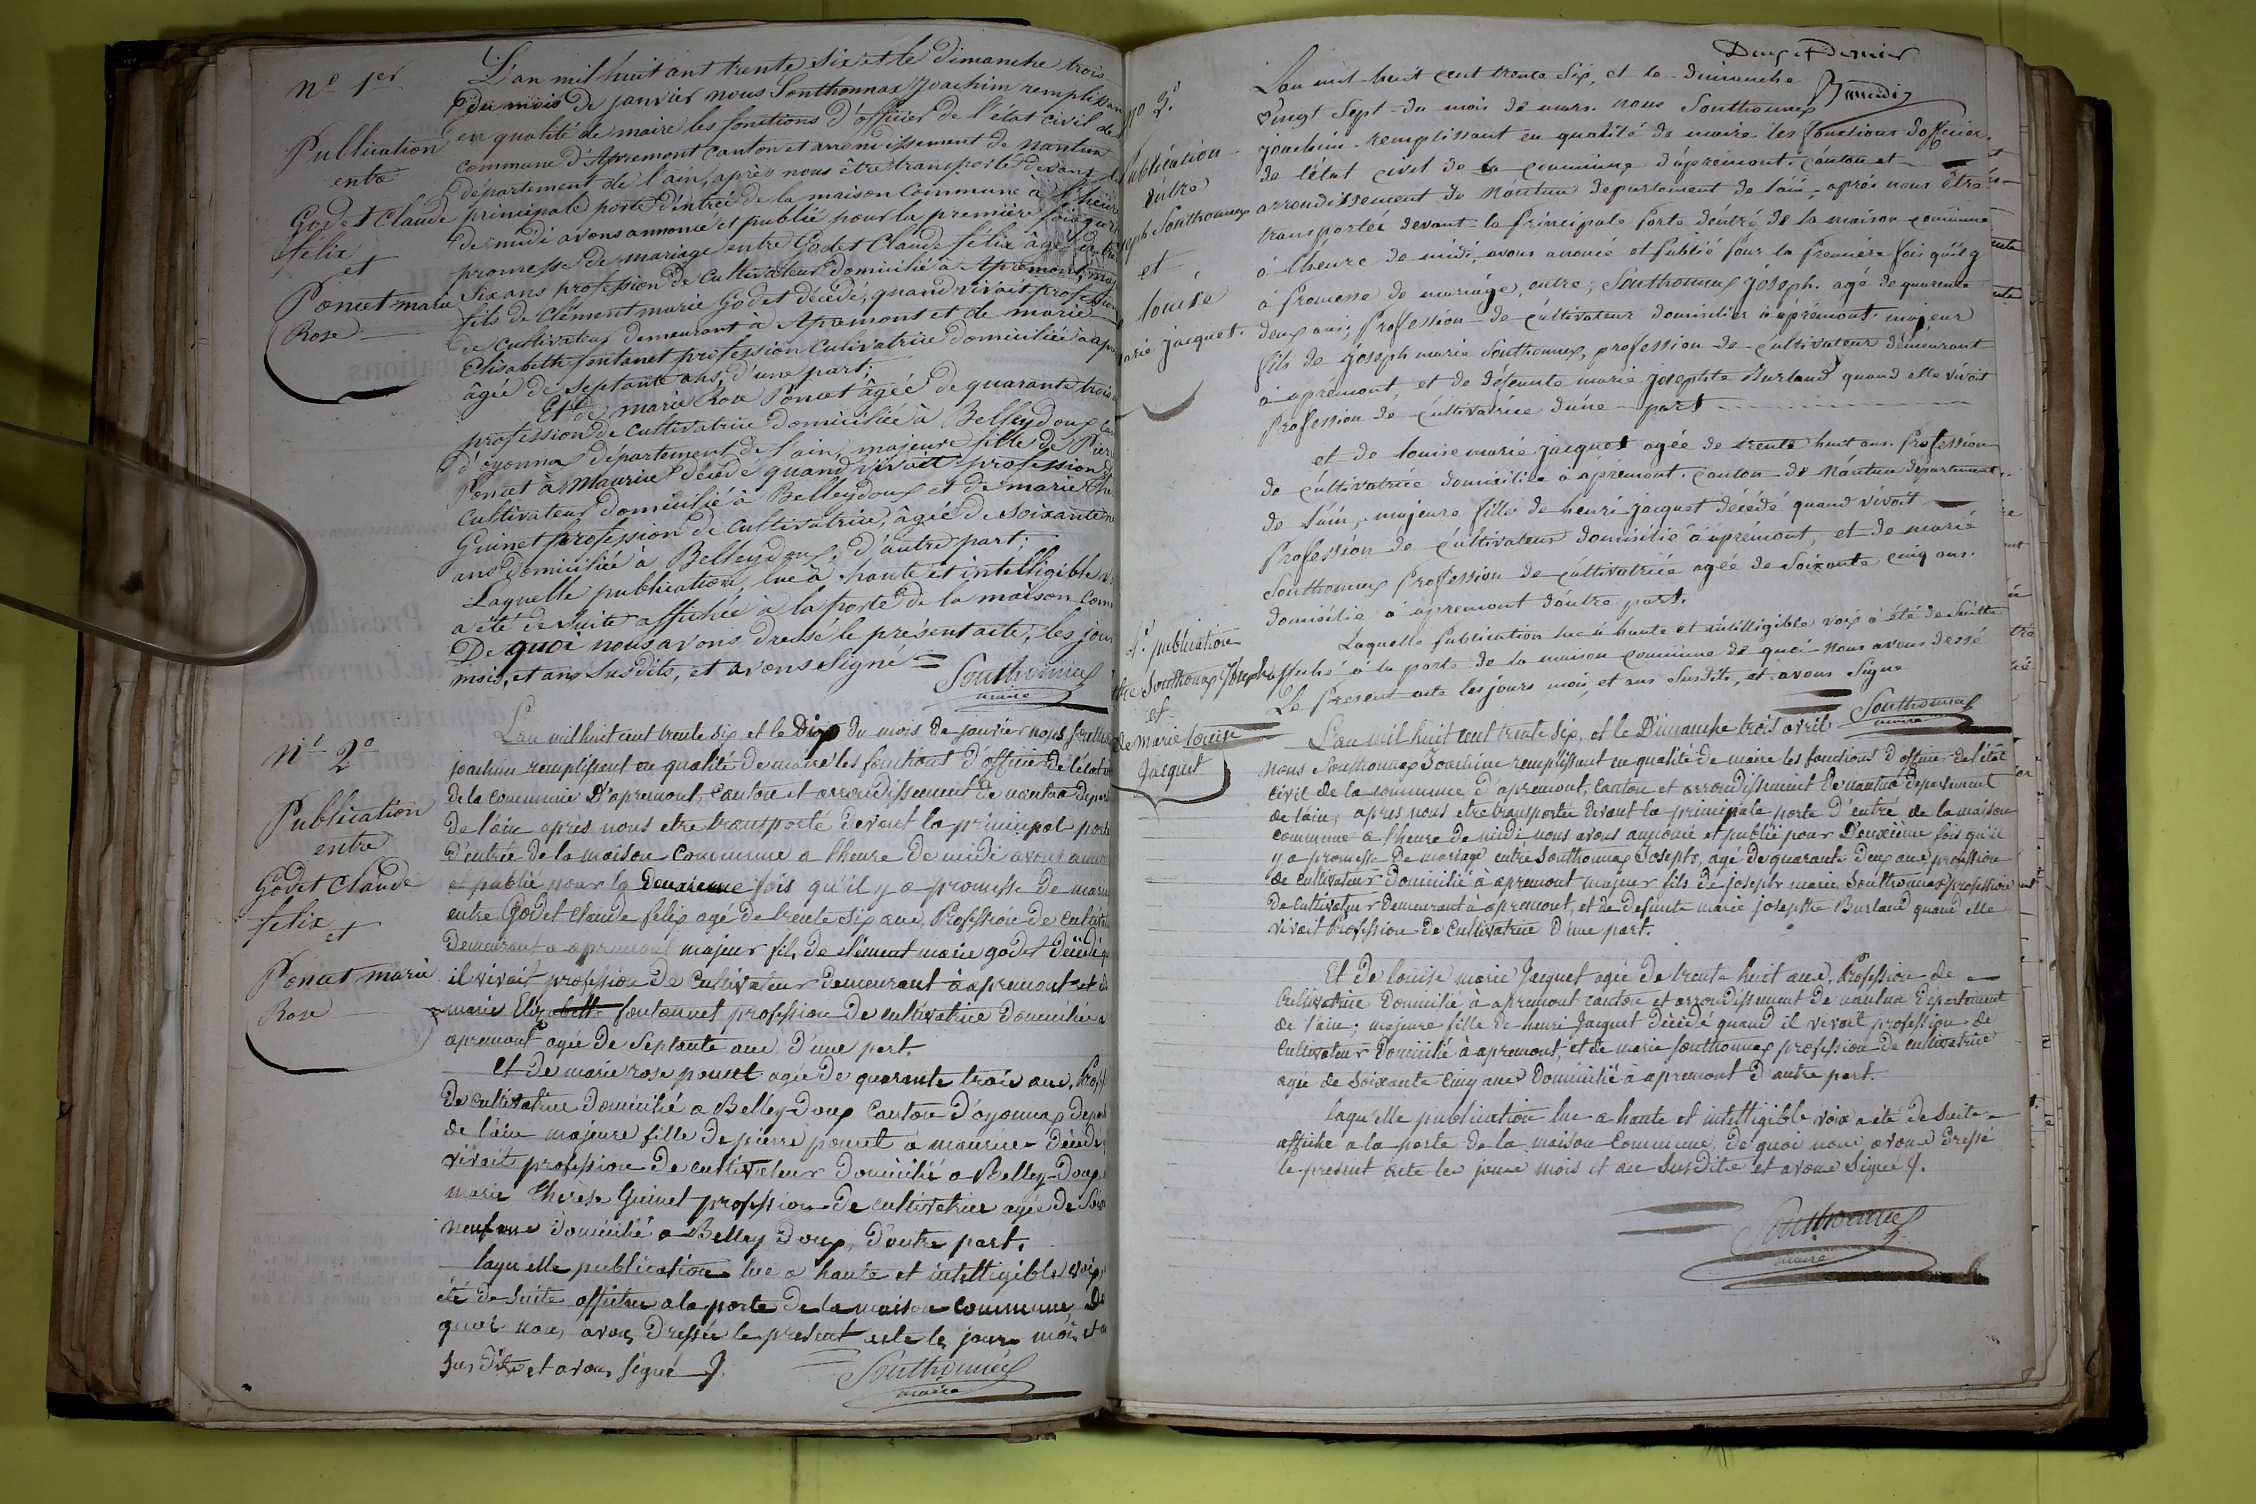 N° 1er
Publication
entre
Godet Claude
félix
et
Poncet marie
Rose
L'an mil huit cent trente six et le dimanche trois
du mois de janvier nous Southonnax Joachim remplissan
en qualité de maire les fonctions d'officier de l'état civil de
commune d'Apremont canton et arrondissement de nantua
departement de l'ain, après nous être transporté devant la
principale porte d'entrée de la maison commune à l'heure
de midi avons annoncé et publié pour la première fois qu'il
promesse de mariage entre Godet Claude félix âgé de tre
six ans profession de cultivateur domicilié à Apremont, maj
fils de Clément marie Godet décédé, quand vivait profession
de cultivateur demeurant à Apremont et de marie
Elisabeth fontanet profession cultivatrice domiciliée à apre
âgée de septante ans, d'une part;
Et de marie Rose Poncet âgée de quarante trois
profession de cultivatrice domiciliée à Belleydoux can
d'oyonnax département de l'ain, majeure fille de Pierre
Poncet à Maurice décédé quand vivait profession de
cultivateur domicilié à Belleydoux et de marie The
Guinet profession de cultivatrice, âgée de soixante ne
ans domiciliée à Belleydoux, d'autre part;
Laquelle publication, lue à haute et intelligible v
a été de suite affichée à la porte de la maison com
De quoi nous avons dressé le présent acte, les jour
mois, et ans susdits, et avons signé =
Southonnax
maire
N° 2°
Publication
entre
Godet Claude
felix
et
Poncet marie
Rose
L'an mil huit cent trente six et le Dix du mois de janvier nous southon
joachim remplissant en qualité de maire les fonctions d'officier de l'état
de la commune D'apremont, canton et arrondissement de nantua depart
de l'ain après nous etre transporté devant la principal porte
d'entrée de la maison commune a l'heure de midi avons annon
et publié pour la deuxieme fois qu'il y a promesse de maria
entre Godet Claude felix agé de trente six ans, Profession de cultivat
demeurant a apremont majeur fils de clément marie godet décédé q
il vivait profession de cultivateur demeurant à apremont et de
marie Elizabette fontannet profession de cultivatrice domiciliée a
apremont agée de septante ans, d'une part.
Et de marie rose poncet agée de quarante trois ans, Profes
de cultivatrice domicilié a Belley-doux canton d'oyonnax depart
de l'ain majeure fille de pierre poncet a maurice décédé
vivait profession de cultivateur domicilié a Belley-doux
marie thérèse Guinet profession de cultivatrice agée de soix
neuf ans domicilié a Belley doux, d'autre part,
laquelle publication lue a haute et intelligible voix
été de suite affichée a la porte de la maison commune, De
quoi nous avons dressée le present acte les jours mois et a
sus dits et avons signé
Southonnax
maire
Deux et Dernier
no 3.e
Publication
entre
seph Southonnax
et
louise
arie jacquet.
L'an mil huit cent trente six, et le dimanche
vingt sept du mois de mars nous Southonnax
joachim remplissant en qualité de maire les fonctions d'officier
de l'état civil de la commune d'apremont. canton et
arrondissement de Nantua departement de l'ain, après nous être
transportée devant la principale porte d'entré de la maison commune
à l'heure de midi, avons anoncé et publié pour la première fois qu'il y
à promesse de mariage, entre; Southonnax joseph. agé de quarente
deux ans, profession de cultivateur domicilier à apremont. majeur
fils de joseph marie Southonnax, profession de cultivateur démeurant
a apremont et de défeunte marie josephte Burland quand elle vivoit
Profession de cultivatrice d'une part
et de louise marie jacquet agée de trente huit ans. profession
de cultivatrice domicilice a apremont. canton de Nantua departement
de l'ain, majeure fille de henri jacquet décédé quand vivoit
Profession de cultivateur domicilie à apremont, et de marie
Southonnax profession de cultivatrice agée de soixante cinq ans.
domicilie à apremont d'autre part.
Laquelle publication lue a haute et intilligible voix à été de suitte
affiché à la porte de la maison commune de quoi nous avons dessé
Le present acte les jours mois, et ans susdits, et avons signe
Southonnax
maire
2e publication
entre Southonax Joseph
et
de Marie louise
Jacquet
L'an mil huit cent trente six, et le Dimanche trois avril
nous Southonnax Joachim remplissant en qualité de maire les fonctions d'officier de l'état
civil de la commune d'apremont, canton et arrondissement de nantua departement
de l'ain, apres nous etre transportée devant la principale porte d'entré de la maison
commune a l'heure de midi nous avons annoncé et publié pour D'euxième fois qu'il
y a promesse de mariage entre Southonnax Joseph, agé de quarante deux ans, profession
de cultivateur domicilié à apremont majeur fils de joseph marie Southonnax profession
de cultivateur demeurant à apremont, et de defunte marie josephte Burland quand elle
vivait Profession de cultivatrice d'une part.
Et de louise marie Jacquet agée de trente huit ans, Profession de
cultivatrice domicilié à apremont canton et arrondissement de nantua département
de l'ain; majeure fille de henri Jacquet décédé quand il vivait profession de
cultivateur domicilié à apremont, et de marie Southonnax profession de cultivatrice
agée de soixante cinq ans domicilié à apremont d'autre part.
laquelle publication lue a haute et intelligible voix a été de suite
affiché a la porte de la maison commune, de quoi nous avons dressé
le present acte les jours mois et an susdits et avons signé
Southonnax
maire